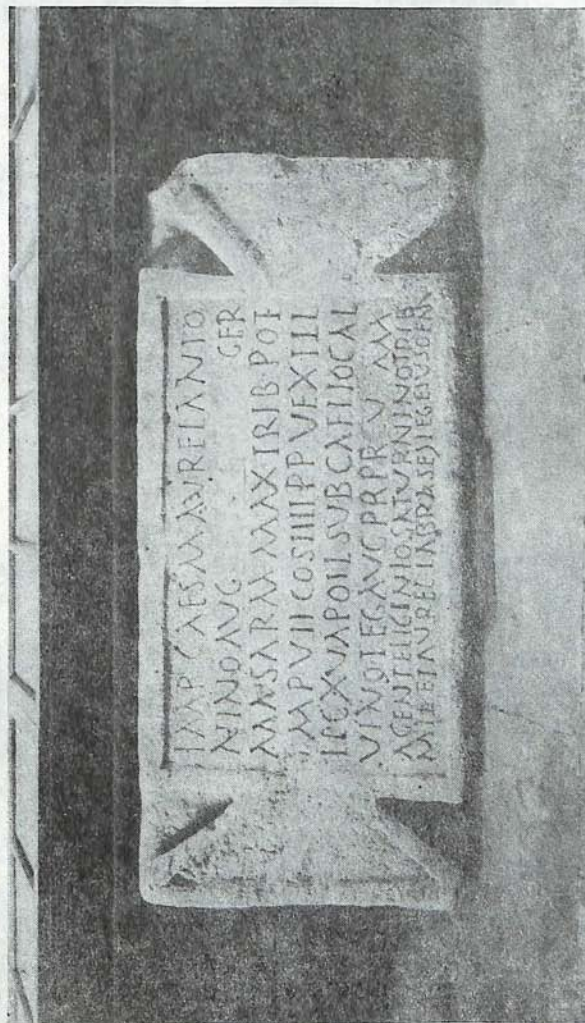 IMP CAES M AVREL ANTO
NINO AVG GER
MA SARM MAX TRIB POT
IMP VII COS IIII P P VEXILL
LEG XV APOLL SVB CAELIO CAL
VINO LEG AVG PR PR
AGENTE LICINIO SATVRNINO TRIB
MIL ET AVRELIA LEG EIVSDEM